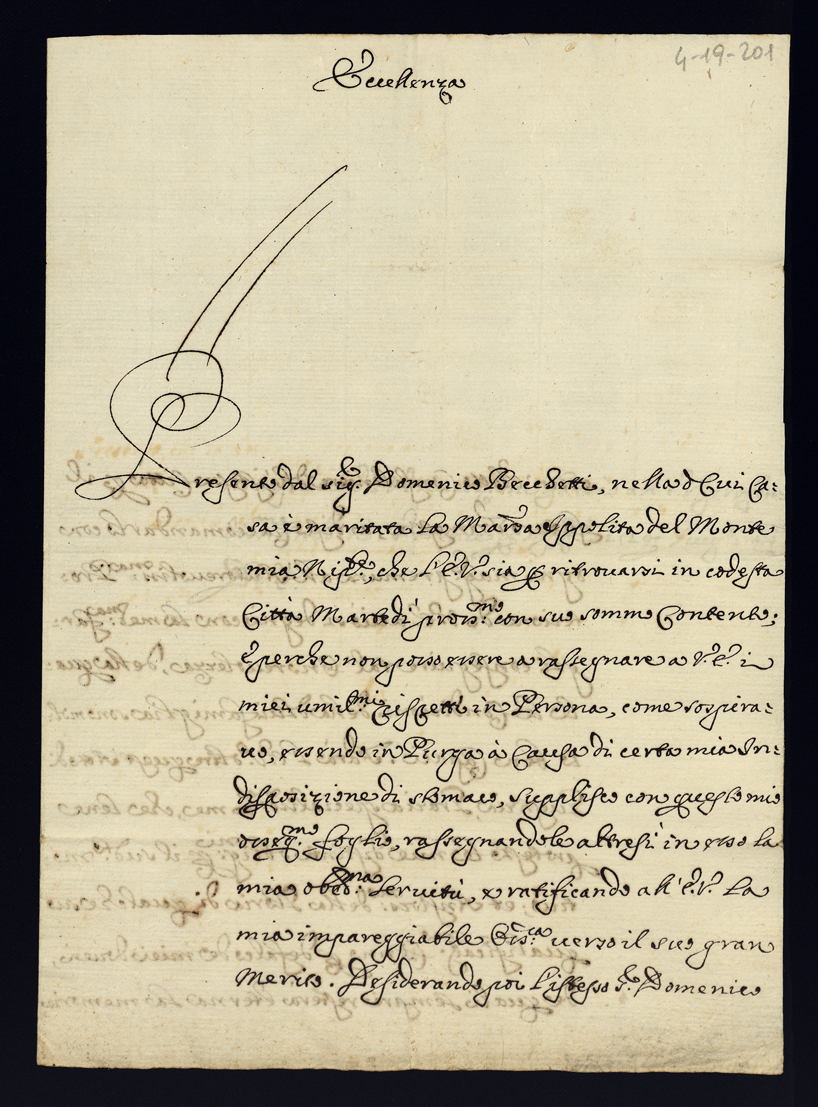 4-19-201
Eccellenza
Presento dal sig.r Domenico Becchetti, nella di Cui Ca=
sa è maritata la March.a Ippolita del Monte
mia Nip.te, che l'E.V. sia p ritrovarsi in codesta
Città Martedì pross.mo con suo sommo Contento;
E perche non posso essere a rassegnare a V.E. i
miei umil.mi rispetti in Persona, come sospira=
vo, essendo in Purga à Causa di certa mia In=
disposizione di stomaco, supplisco con questo mio
osseq.mo foglio, rassegnandole altresì in esso la
mia obb.ma Servitù, e ratificando all'E.V. la
mia impareggiabile verso il suo gran
Merito. Desiderando poi l'istesso S.r Domenico